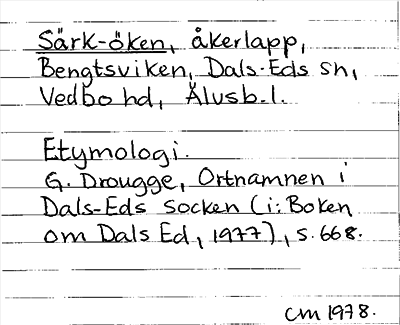 Särk-öken, åkerlapp,
Bengtsviken, Dals-Eds sn,
Vedbo hd, Älvsb.l.
Etymologi.
G. Drougge, Ortnamnen i
Dals-Eds socken (i: Boken
om Dals Ed, 1977), s. 668.
CM 1978.